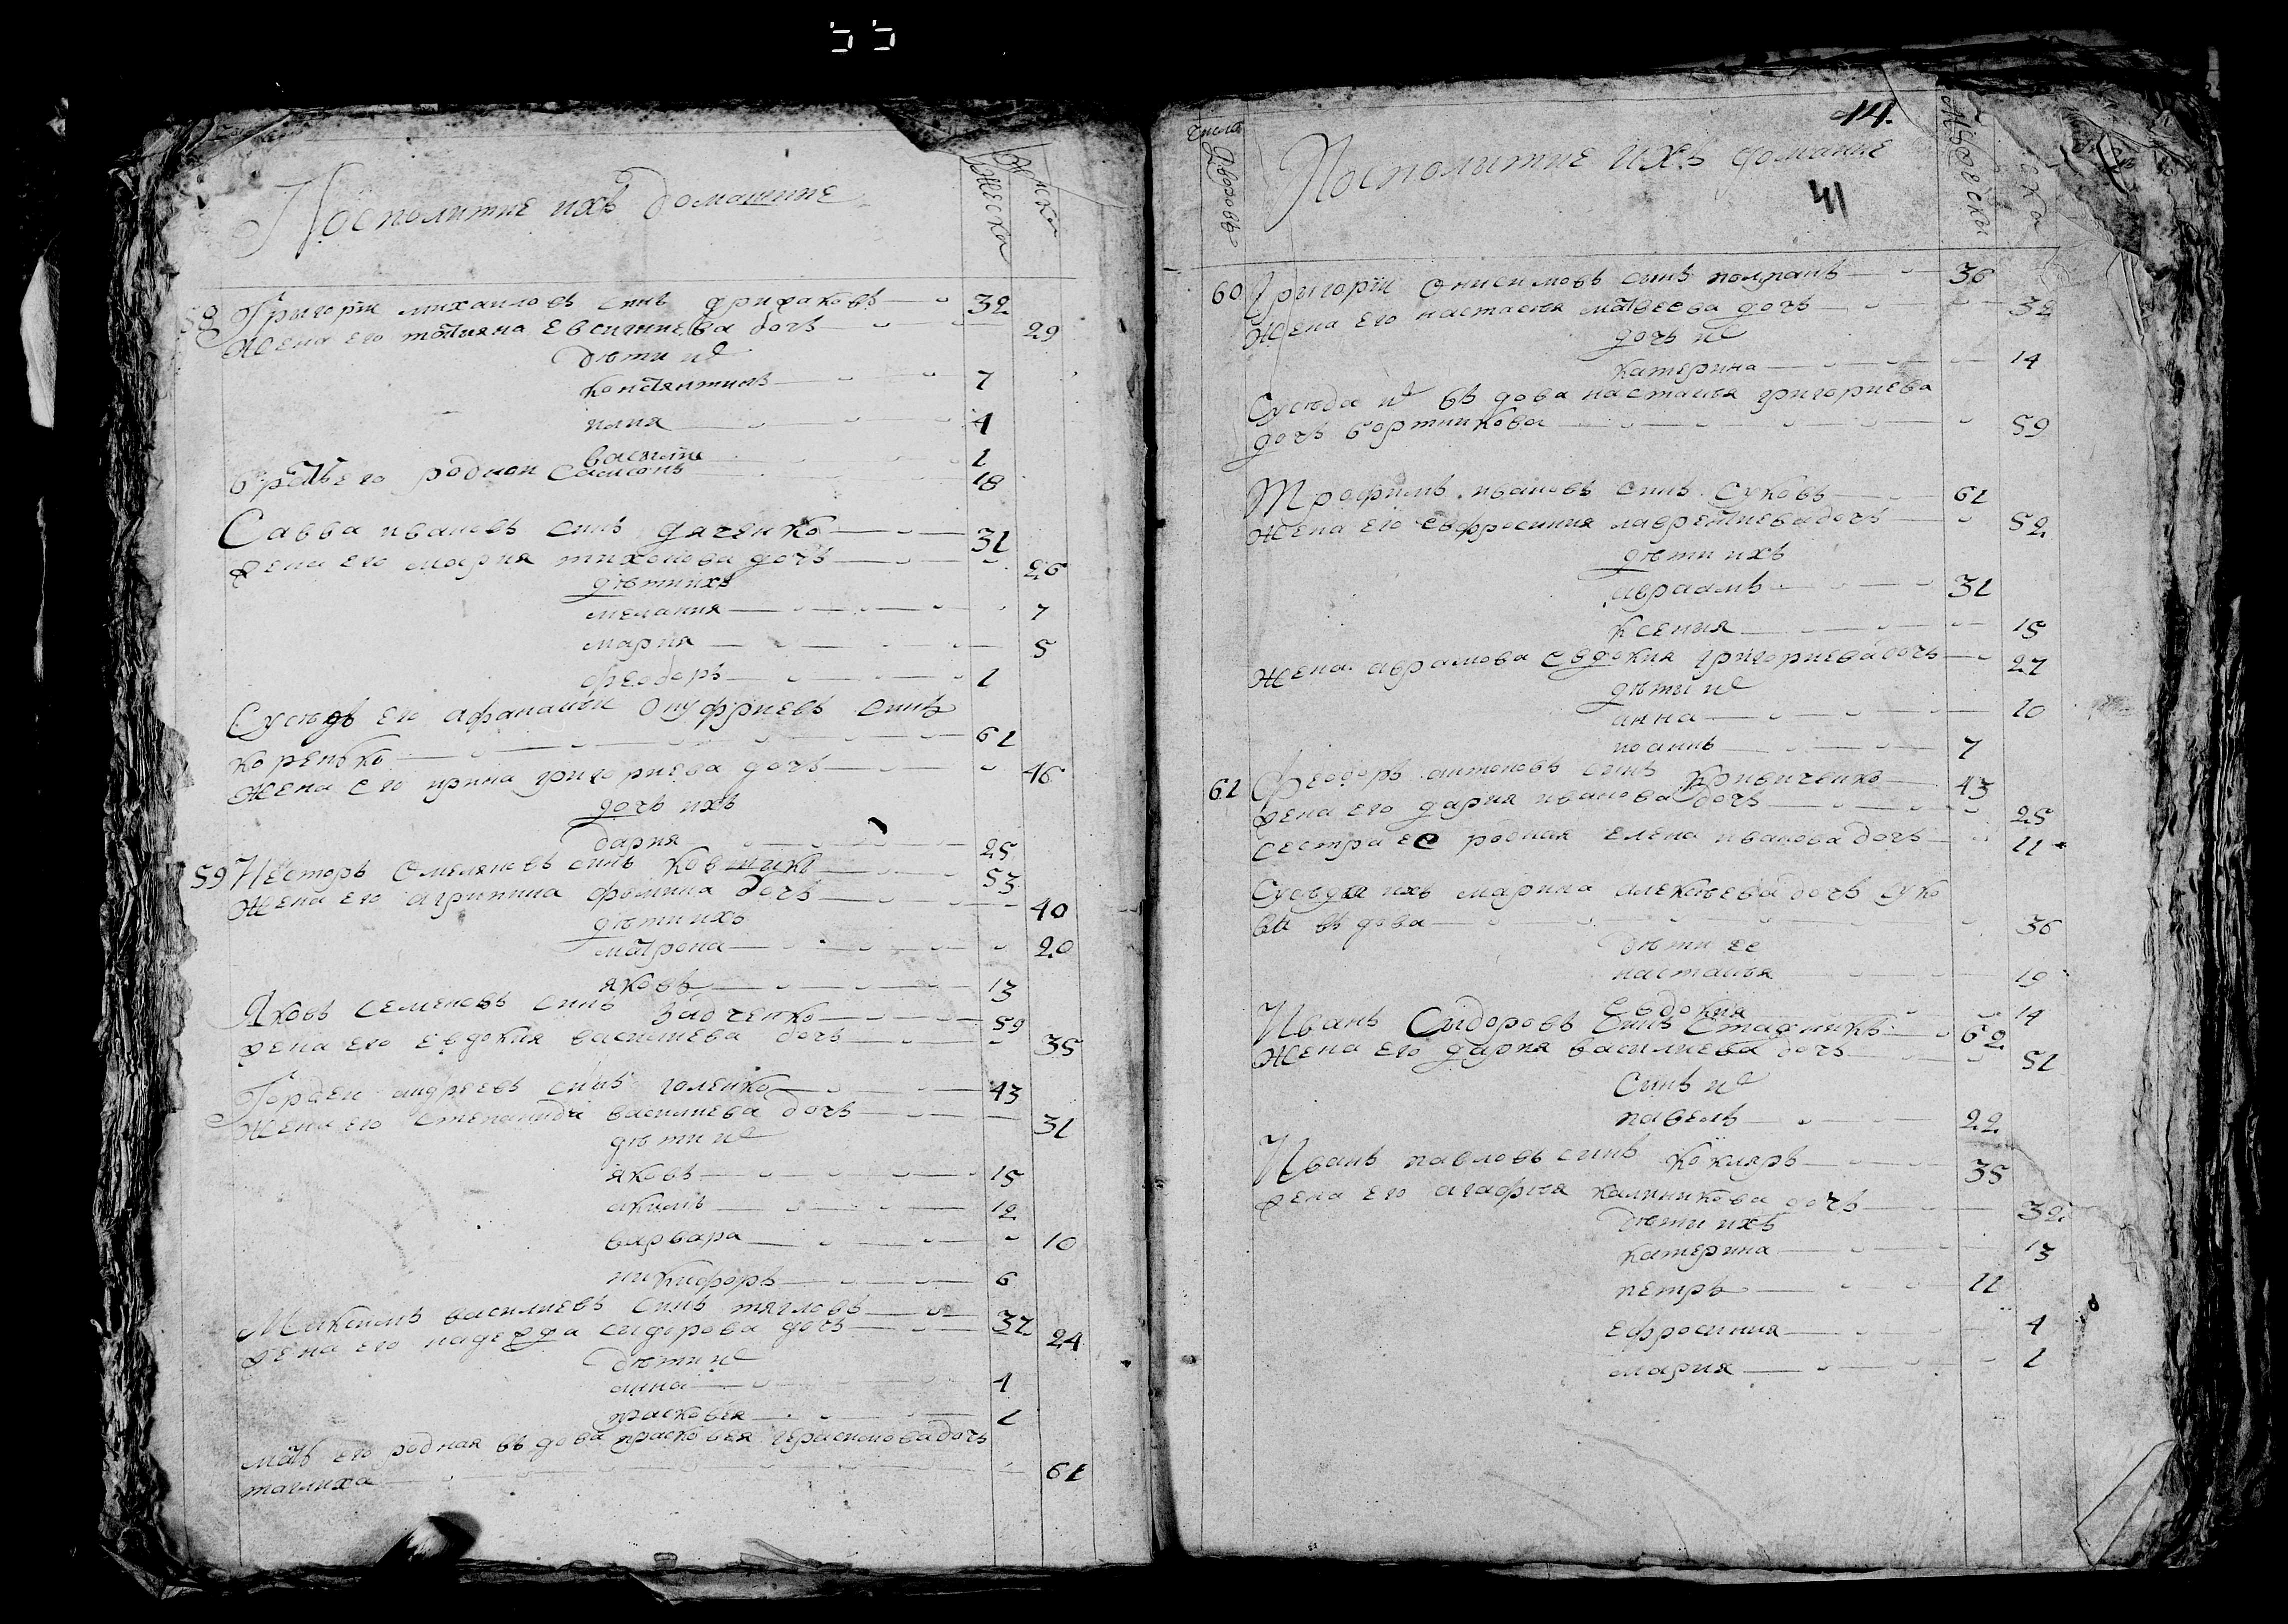 Посполитие ихъ домашние
Мужеска
Женска
58 Григории михаиловъ синъ дридаковъ 32
Жена его татияна Евсигниева дочъ 29
дѣти ихъ
константинъ 7
илия 4
василии 1
братъ его роднои самсонъ 18
Савва ивановъ синъ дяченко 31
Жена его мария тихонова дочъ 26
дѣти ихъ
мелания 7
мария 5
феодоръ 1
Сусѣдъ его афанасии Онуфриевъ синъ
коренько 61
Жена его ирина григориева дочъ 46
дочъ ихъ
дария 25
59 Несторъ Омеляновъ синъ Ковшикъ 53
Жена его агрипина фомина дочъ 40
дѣти ихъ
матрона 20
яковъ 13
Яковъ семеновъ синъ Задченко 59
Жена его евдокия василиева дочъ 35
Гордеи андреевъ синъ голенко 43
Жена его степанида василиева дочъ 31
дѣти ихъ
яковъ 15
акимъ 12
варвара 10
никифоръ 6
Максимъ василиевъ синъ тягловъ 32
Жена его надежда сидорова дочъ 24
дѣти ихъ
анна 4
прасковея 1
мать его родная въдова прасковея герасимова дочъ
таглиха 61
44.
41
Числа Дворовъ
Посполитие ихъ домашние
Мужеска
60 Григории Онисимовъ синъ полпанъ 36
Жена его настасия матвеева дочъ 32
дочъ ихъ
катерина 14
Сусѣда ихъ въдова настасия григориева
дочъ бортникова 59
Трофимъ ивановъ синъ Суковъ 61
Жена его ефросиния лаврентиева дочъ 52
дѣти ихъ
авраамъ 31
ксения 15
Жена авраамова евдокия григориева дочъ 27
дѣти ихъ
анна 10
иоаннъ 7
61 Феодоръ антоновъ синъ Кривиченко 43
Жена его дария иванова дочъ 25
сестра ее родная елена иванова дочъ 11
Сусѣда ихъ марина алексѣева дочъ суко
ва въдова 36
дѣти ее
настасия 19
Евдокия 14
Иванъ Сидоровъ синъ Стадникъ 62
Жена его дария василиева дочъ 51
Синъ ихъ
павелъ 22
Иванъ павловъ синъ Кокляръ 35
Жена его агафия калиникова дочъ 32
дѣти ихъ
катерина 13
петръ 11
ефросиния 4
мария 1